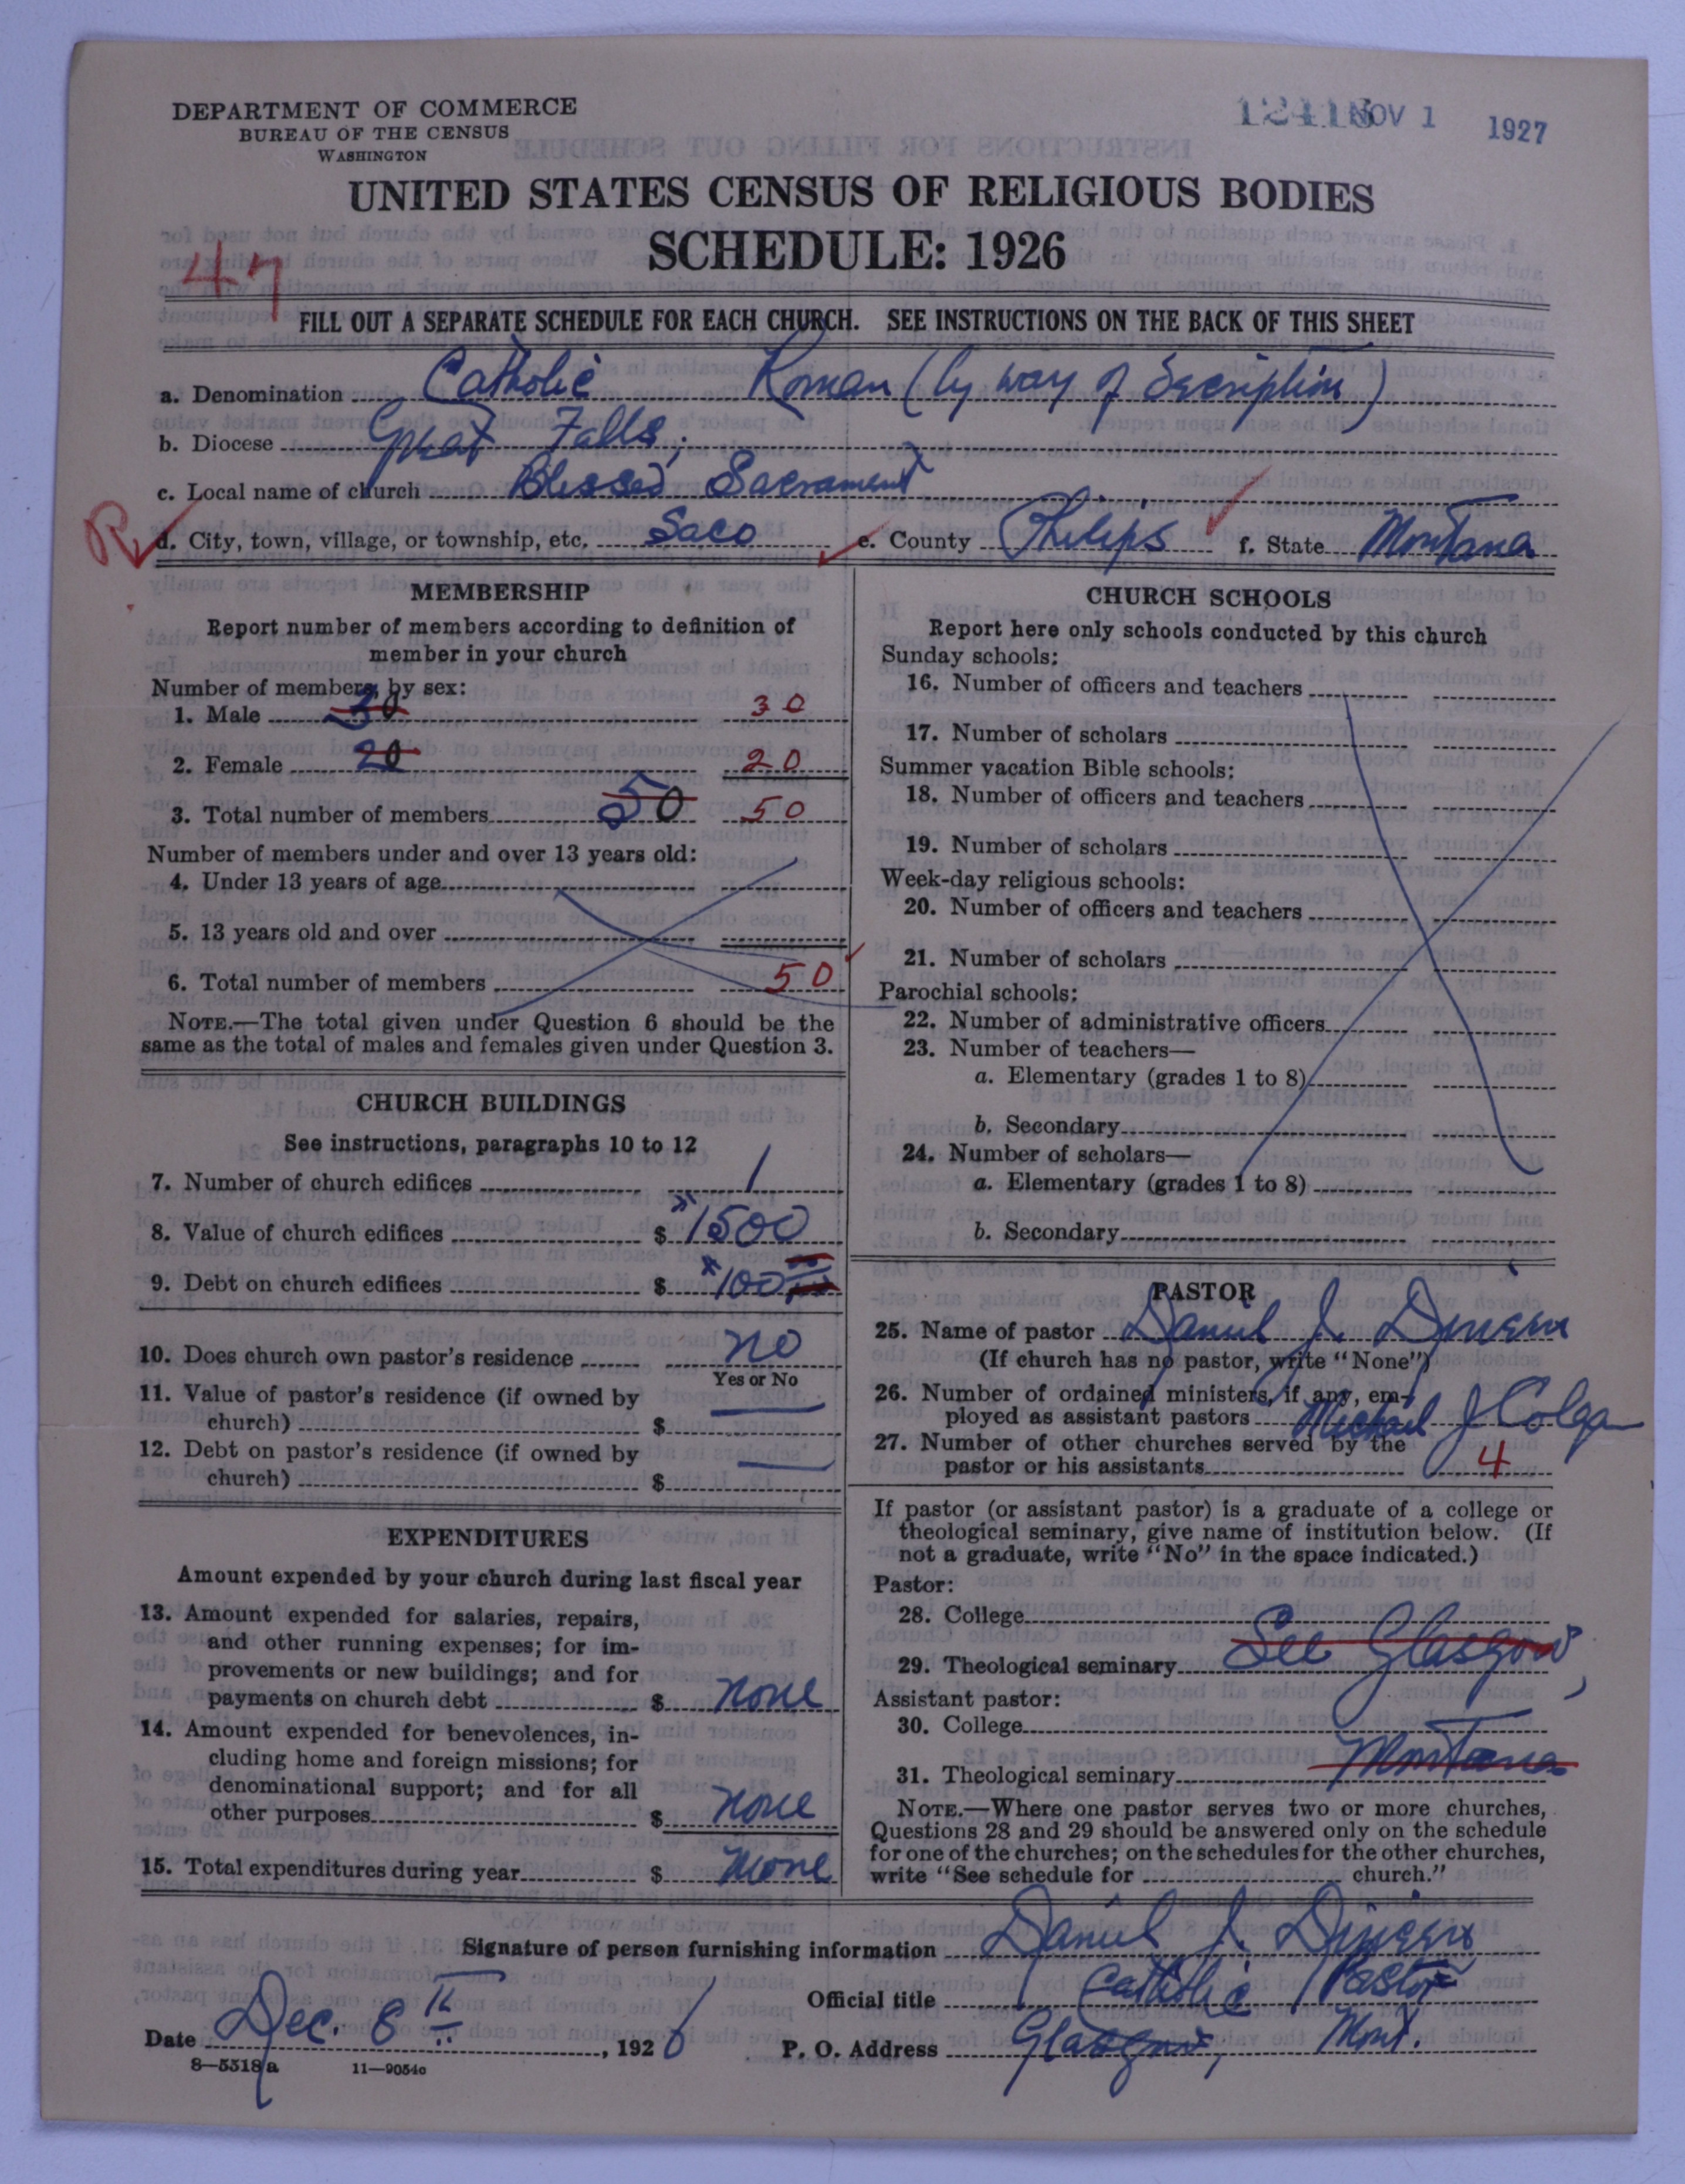 DEPARTMENT OF COMMERCE
BUREAU OF THE CENSUS
WASHINGTON
NOV 1 1927
UNITED STATES CENSUS OF RELIGIOUS BODIES
SCHEDULE: 1926
47
FILL OUT A SEPARATE SCHEDULE FOR EACH CHURCH. SEE INSTRUCTIONS ON THE BACK OF THIS SHEET
a. Denomination Catholic Roman (by way of Description)
b. Diocese Great Falls,
c. Local name of church Blessed Sacrament
R
d. City, town, village, or township, etc. Saco e. County Philips f. State Montana
MEMBERSHIP
Report number of members according to definition of
member in your church
Number of members by sex:
1. Male 30 30
2. Female 20 20
3. Total number of members 50 50
Number of members under and over 13 years old:
4. Under 13 years of age
5. 13 years old and over
6. Total number of members 50
NOTE.—The total given under Question 6 should be the
same as the total of males and females given under Question 3.
CHURCH BUILDINGS
See instructions, paragraphs 10 to 12
7. Number of church edifices 1
8. Value of church edifices $ 1500
9. Debt on church edifices $ 100
10. Does church own pastor's residence no
Yes or No
11. Value of pastor's residence (if owned by
church) $
12. Debt on pastor's residence (if owned by
church) $
EXPENDITURES
Amount expended by your church during last fiscal year
13. Amount expended for salaries, repairs,
and other running expenses; for im-
provements or new buildings; and for
payments on church debt $ none
14. Amount expended for benevolences, in-
cluding home and foreign missions; for
denominational support; and for all
other purposes $ none
15. Total expenditures during year $ None
CHURCH SCHOOLS
Report here only schools conducted by this church
Sunday schools:
16. Number of officers and teachers
17. Number of scholars
Summer vacation Bible schools:
18. Number of officers and teachers
19. Number of scholars
Week-day religious schools:
20. Number of officers and teachers
21. Number of scholars
Parochial schools:
22. Number of administrative officers
23. Number of teachers—
a. Elementary (grades 1 to 8)
b. Secondary
24. Number of scholars—
a. Elementary (grades 1 to 8)
b. Secondary
PASTOR
25. Name of pastor Daniel J. Dineen
(If church has no pastor, write "None")
26. Number of ordained ministers, if any, em-
ployed as assistant pastors Michael J Colgan
27. Number of other churches served by the
pastor or his assistants 4
If pastor (or assistant pastor) is a graduate of a college or
theological seminary, give name of institution below. (If
not a graduate, write "No" in the space indicated.)
Pastor:
28. College
29. Theological seminary See Glasgow,
Assistant pastor:
30. College
31. Theological seminary Montana
NOTE.—Where one pastor serves two or more churches,
Questions 28 and 29 should be answered only on the schedule
for one of the churches; on the schedules for the other churches,
write "See schedule for church."
Signature of person furnishing information Daniel J. Dineen
Official title Catholic Pastor
Date Dec. 8th, 1926 P. O. Address Glasgow, Mont.
8—5518a 11—9054c